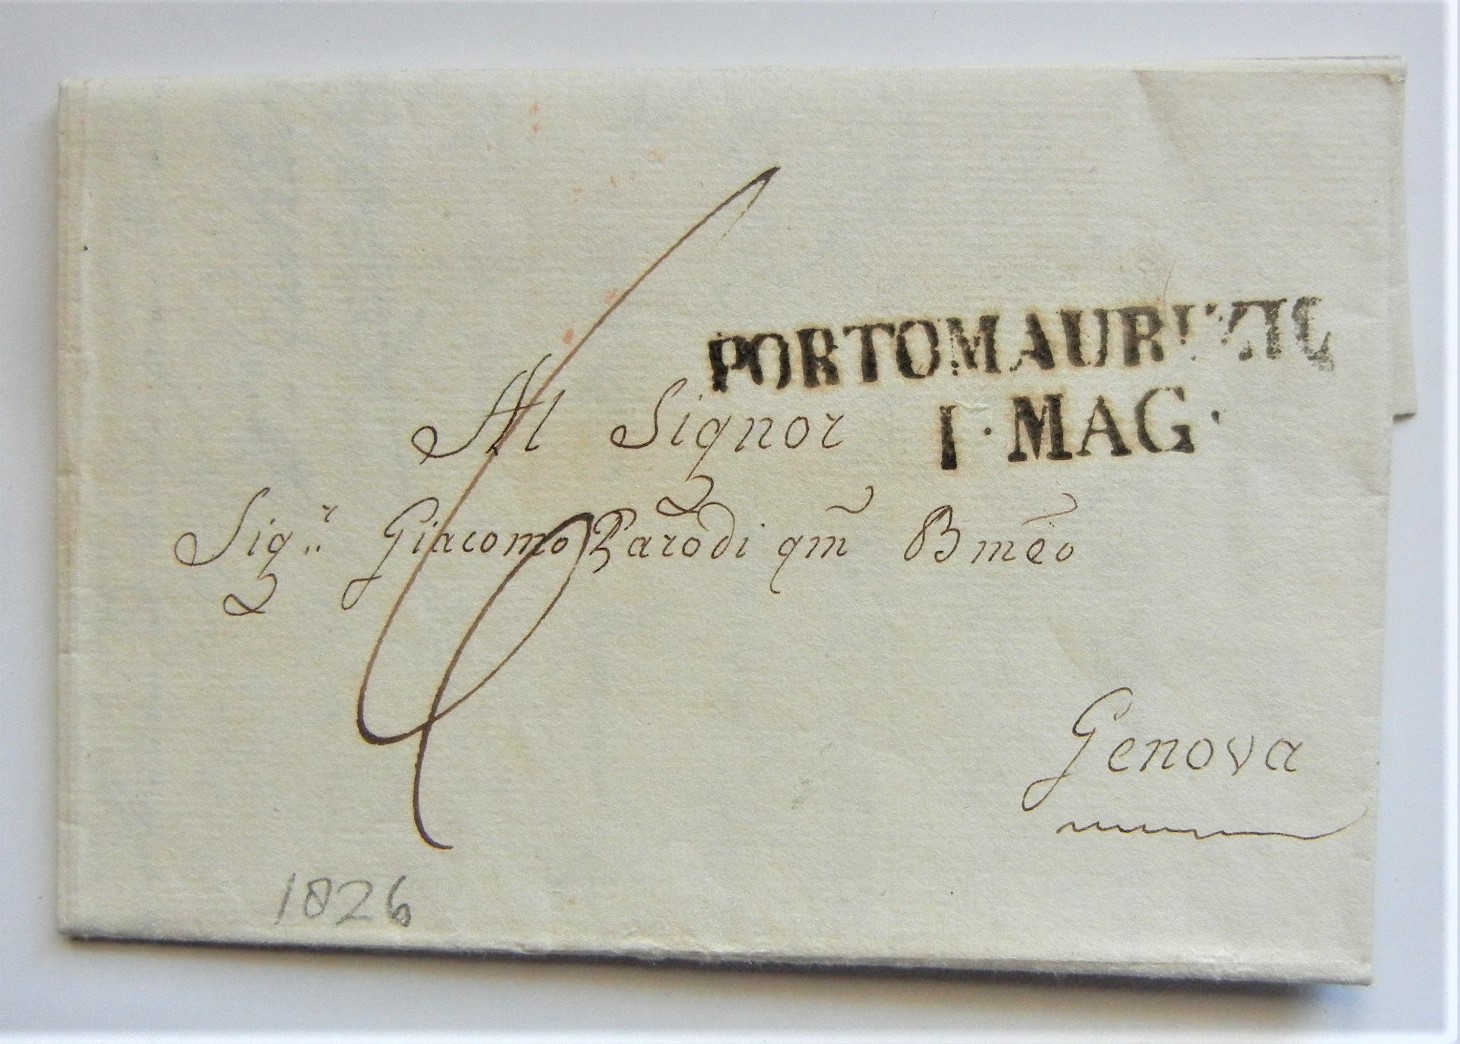 PORTOMAURIZIO
1·MAG·
Al Signor
Sig.r Giacomo Parodi qm̃ Bmẽo
Genova
1826